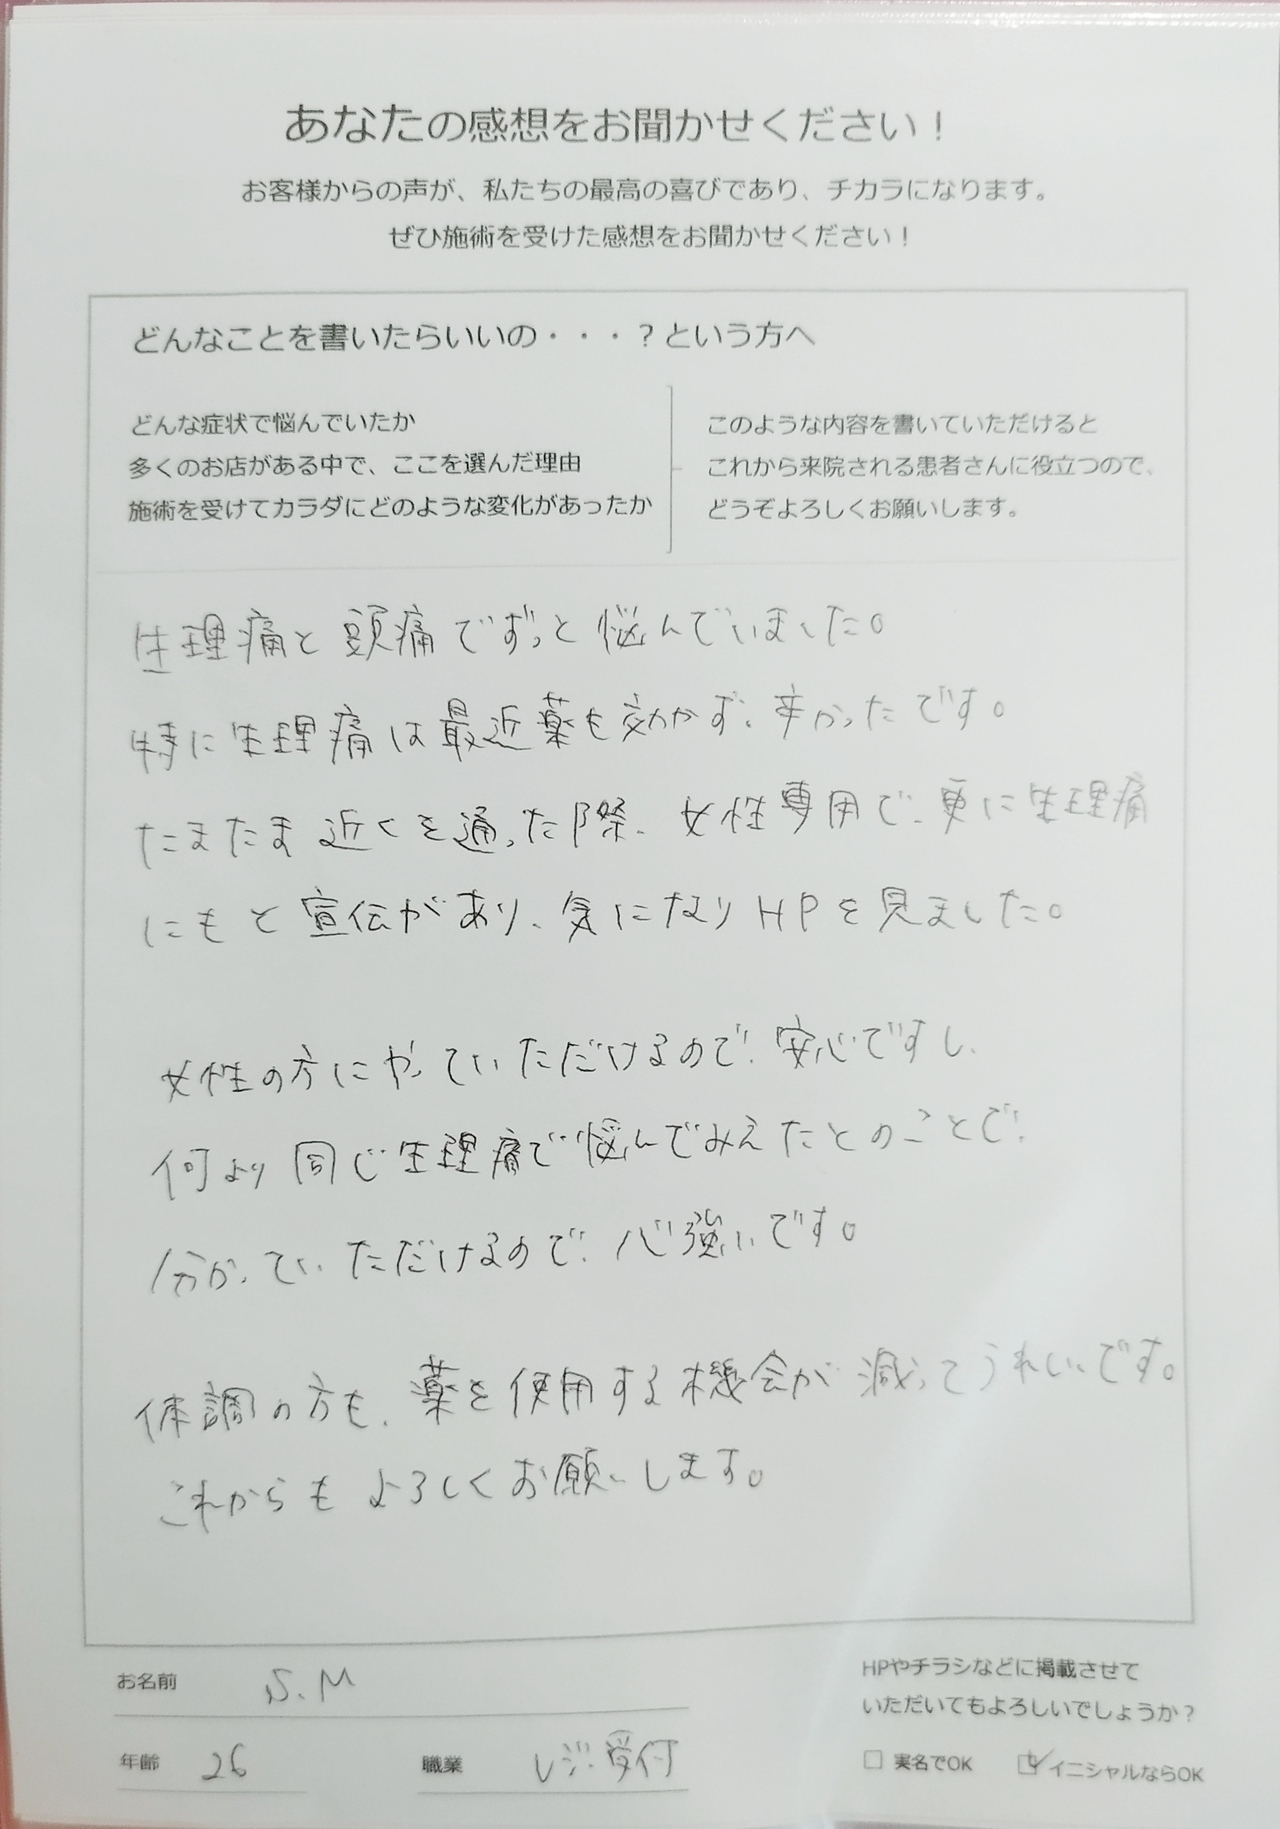 あなたの感想をお聞かせください！
お客様からの声が、私たちの最高の喜びであり、チカラになります。
ぜひ施術を受けた感想をお聞かせください！
どんなことを書いたらいいの・・・？という方へ
どんな症状で悩んでいたか
多くのお店がある中で、ここを選んだ理由
施術を受けてカラダにどのような変化があったか
このような内容を書いていただけると
これから来院される患者さんに役立つので、
どうぞよろしくお願いします。
生理痛と頭痛でずっと悩んでいました。
特に生理痛は最近薬も効かず、辛かったです。
たまたま近くを通った際、女性専用で、更に生理痛
にもと宣伝があり、気になりHPを見ました。
女性の方にやっていただけるので、安心ですし、
何より同じ生理痛で悩んでみえたとのことで、
分かっていただけるので、心強いです。
体調の方も、薬を使用する機会が減ってうれしいです。
これからもよろしくお願いします。
お名前 S.M
年齢 26 職業 レジ・受付
HPやチラシなどに掲載させて
いただいてもよろしいでしょうか？
□ 実名でOK ☑ イニシャルならOK